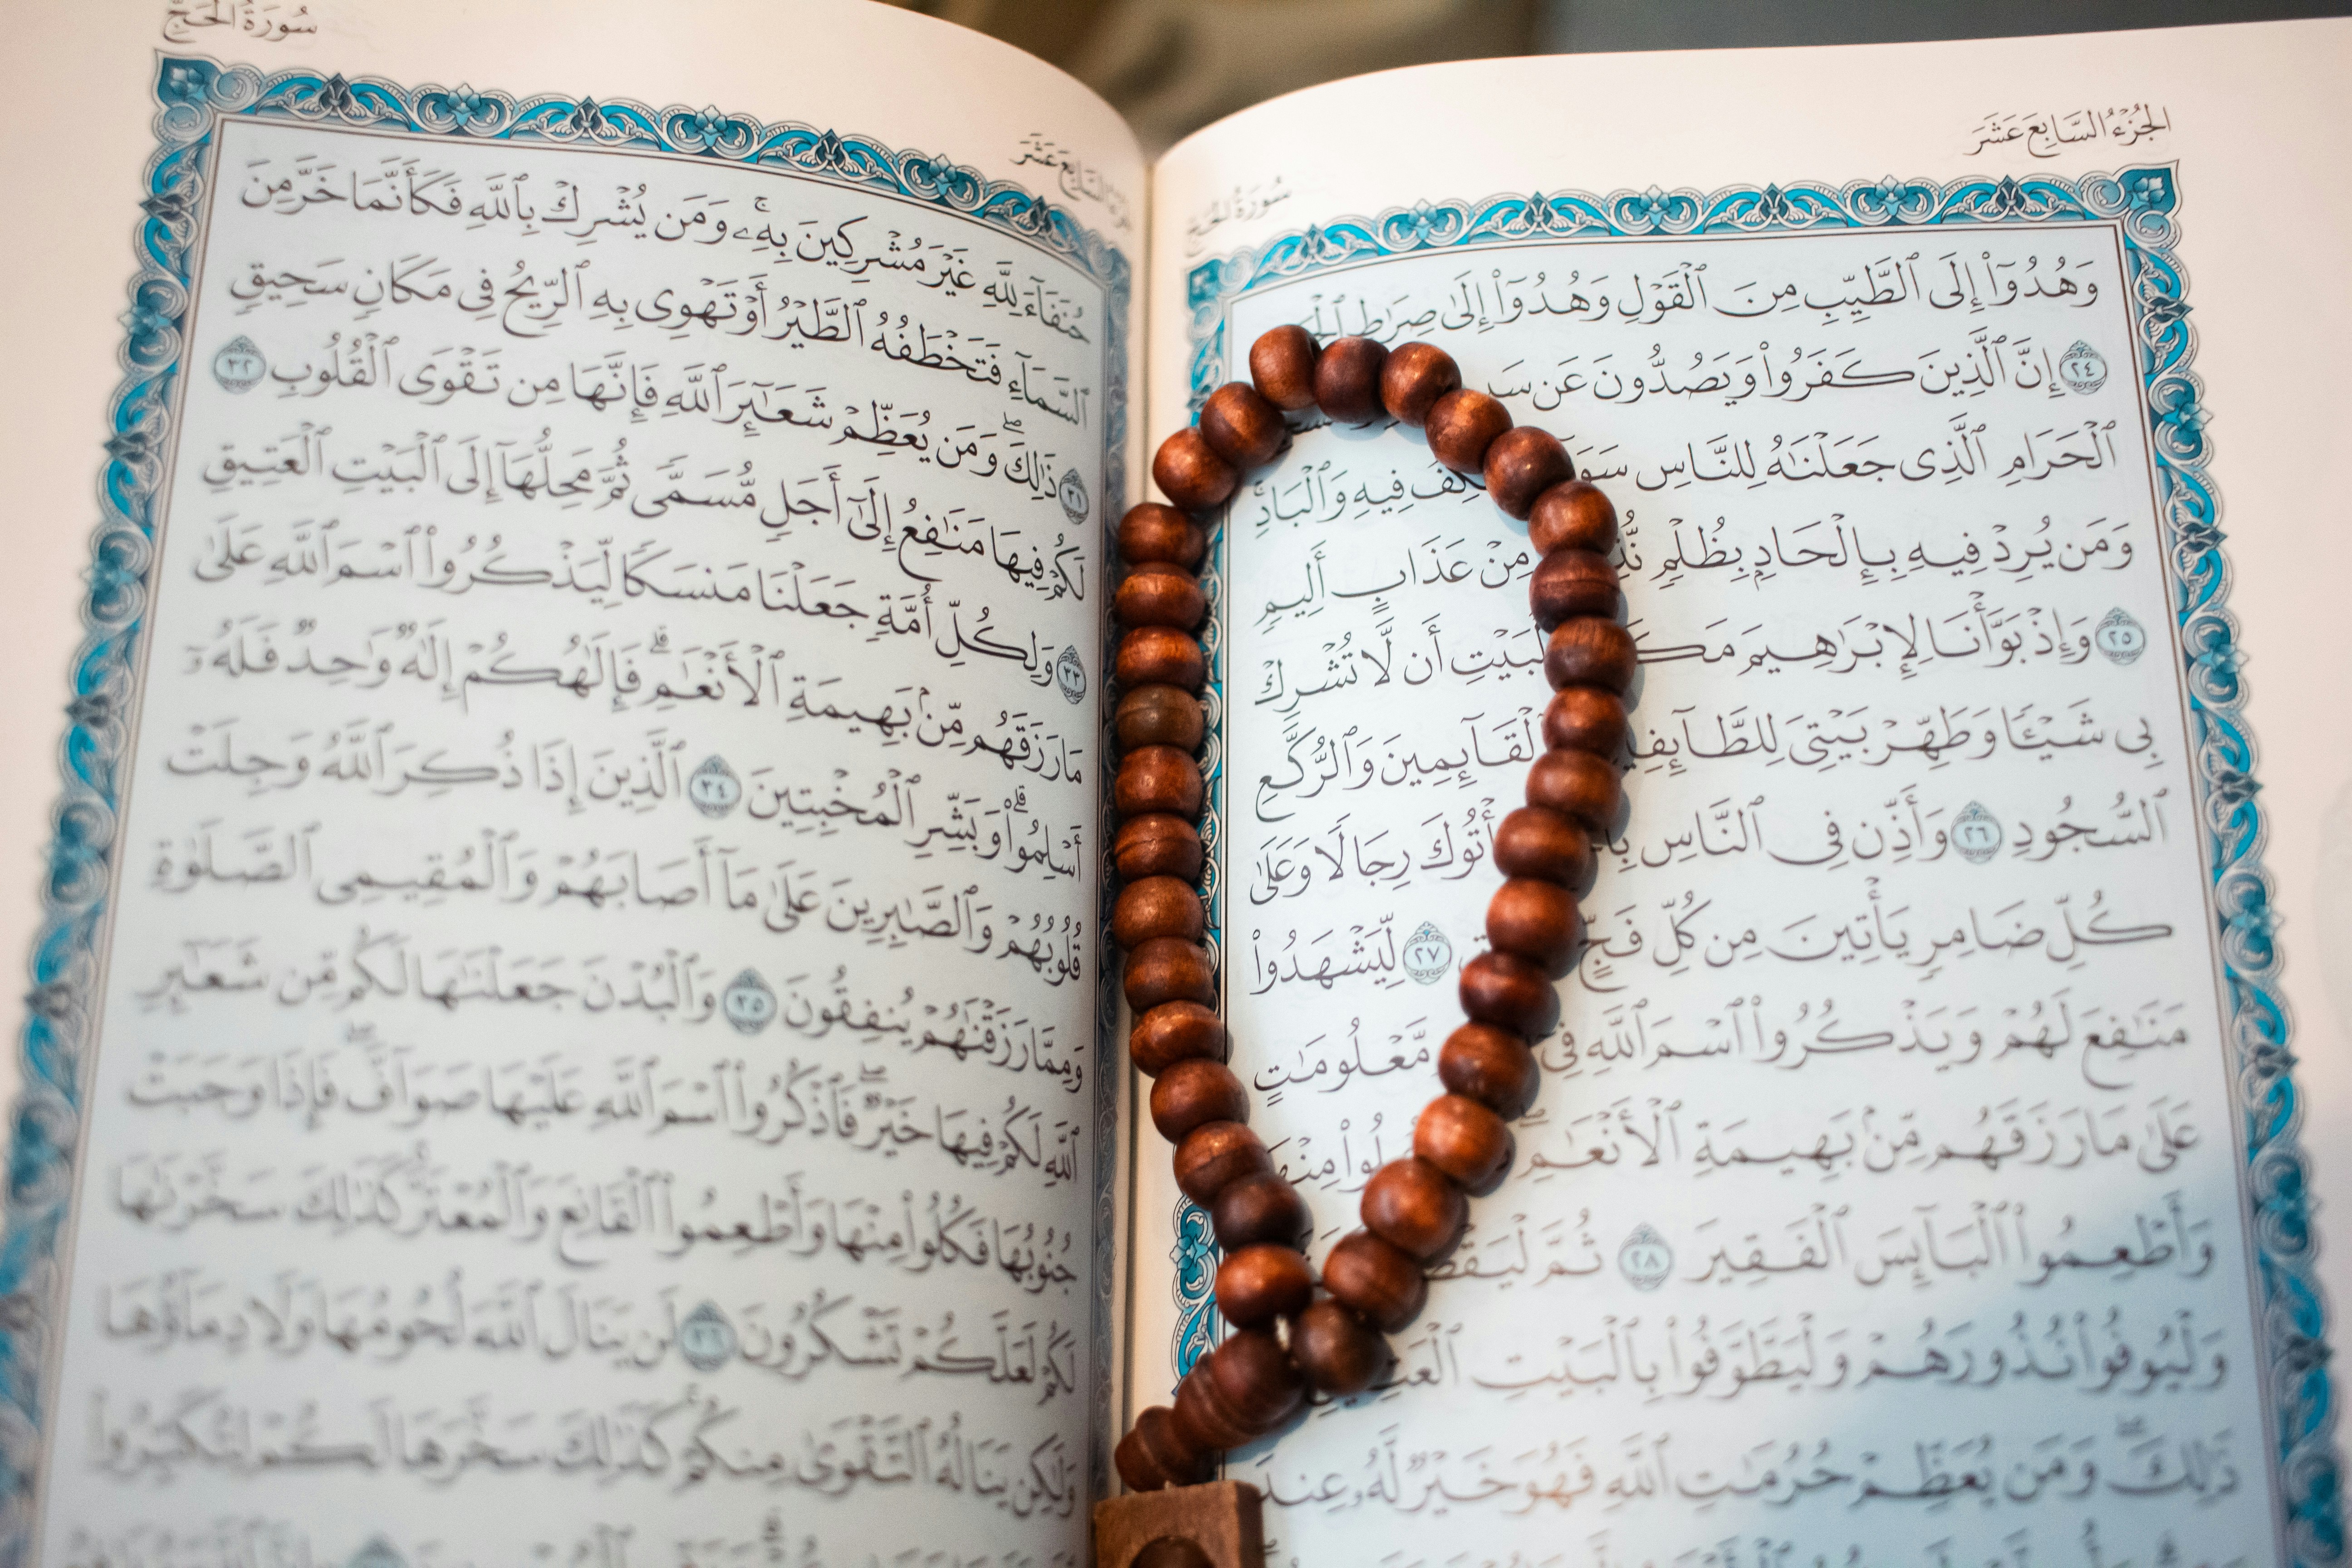 الجُزْءُ السَّابِعَ عَشَرَ
سُورَةُ الحَجِّ
وَهُدُوٓاْ إِلَى ٱلطَّيِّبِ مِنَ ٱلۡقَوۡلِ وَهُدُوٓاْ إِلَىٰ صِرَٰطِ
٢٤ إِنَّ ٱلَّذِينَ كَفَرُواْ وَيَصُدُّونَ عَن
ٱلۡحَرَامِ ٱلَّذِي جَعَلۡنَٰهُ لِلنَّاسِ فِيهِ وَٱلۡبَادِۚ
وَمَن يُرِدۡ فِيهِ بِإِلۡحَادِۭ بِظُلۡمٖ مِنۡ عَذَابٍ أَلِيمٖ
٢٥ وَإِذۡ بَوَّأۡنَا لِإِبۡرَٰهِيمَ ٱلۡبَيۡتِ أَن لَّا تُشۡرِكۡ
بِي شَيۡـٔٗا وَطَهِّرۡ بَيۡتِيَ لِلطَّآئِفِينَ وَٱلۡقَآئِمِينَ وَٱلرُّكَّعِ
ٱلسُّجُودِ ٢٦ وَأَذِّن فِي ٱلنَّاسِ يَأۡتُوكَ رِجَالٗا وَعَلَىٰ
كُلِّ ضَامِرٖ يَأۡتِينَ مِن كُلِّ فَجٍّ ٢٧ لِّيَشۡهَدُواْ
مَنَٰفِعَ لَهُمۡ وَيَذۡكُرُواْ ٱسۡمَ ٱللَّهِ فِيٓ مَّعۡلُومَٰتٍ
عَلَىٰ مَا رَزَقَهُم مِّنۢ بَهِيمَةِ ٱلۡأَنۡعَٰمِۖ
وَأَطۡعِمُواْ ٱلۡبَآئِسَ ٱلۡفَقِيرَ ٢٨ ثُمَّ
وَلۡيُوفُواْ نُذُورَهُمۡ وَلۡيَطَّوَّفُواْ بِٱلۡبَيۡتِ
ذَٰلِكَۖ وَمَن يُعَظِّمۡ حُرُمَٰتِ ٱللَّهِ فَهُوَ خَيۡرٞ لَّهُۥ عِندَ
سُورَةُ الحَجِّ
حُنَفَآءَ لِلَّهِ غَيۡرَ مُشۡرِكِينَ بِهِۦۚ وَمَن يُشۡرِكۡ بِٱللَّهِ فَكَأَنَّمَا خَرَّ مِنَ
ٱلسَّمَآءِ فَتَخۡطَفُهُ ٱلطَّيۡرُ أَوۡ تَهۡوِي بِهِ ٱلرِّيحُ فِي مَكَانٖ سَحِيقٖ
٣١ ذَٰلِكَۖ وَمَن يُعَظِّمۡ شَعَٰٓئِرَ ٱللَّهِ فَإِنَّهَا مِن تَقۡوَى ٱلۡقُلُوبِ ٣٢
لَكُمۡ فِيهَا مَنَٰفِعُ إِلَىٰٓ أَجَلٖ مُّسَمّٗى ثُمَّ مَحِلُّهَآ إِلَى ٱلۡبَيۡتِ ٱلۡعَتِيقِ
٣٣ وَلِكُلِّ أُمَّةٖ جَعَلۡنَا مَنسَكٗا لِّيَذۡكُرُواْ ٱسۡمَ ٱللَّهِ عَلَىٰ
مَا رَزَقَهُم مِّنۢ بَهِيمَةِ ٱلۡأَنۡعَٰمِۗ فَإِلَٰهُكُمۡ إِلَٰهٞ وَٰحِدٞ فَلَهُۥٓ
أَسۡلِمُواْۗ وَبَشِّرِ ٱلۡمُخۡبِتِينَ ٣٤ ٱلَّذِينَ إِذَا ذُكِرَ ٱللَّهُ وَجِلَتۡ
قُلُوبُهُمۡ وَٱلصَّٰبِرِينَ عَلَىٰ مَآ أَصَابَهُمۡ وَٱلۡمُقِيمِي ٱلصَّلَوٰةِ
وَمِمَّا رَزَقۡنَٰهُمۡ يُنفِقُونَ ٣٥ وَٱلۡبُدۡنَ جَعَلۡنَٰهَا لَكُم مِّن شَعَٰٓئِرِ
ٱللَّهِ لَكُمۡ فِيهَا خَيۡرٞۖ فَٱذۡكُرُواْ ٱسۡمَ ٱللَّهِ عَلَيۡهَا صَوَآفَّۖ فَإِذَا وَجَبَتۡ
جُنُوبُهَا فَكُلُواْ مِنۡهَا وَأَطۡعِمُواْ ٱلۡقَانِعَ وَٱلۡمُعۡتَرَّۚ كَذَٰلِكَ سَخَّرۡنَٰهَا
لَكُمۡ لَعَلَّكُمۡ تَشۡكُرُونَ ٣٦ لَن يَنَالَ ٱللَّهَ لُحُومُهَا وَلَا دِمَآؤُهَا
وَلَٰكِن يَنَالُهُ ٱلتَّقۡوَىٰ مِنكُمۡۚ كَذَٰلِكَ سَخَّرَهَا لَكُمۡ لِتُكَبِّرُواْ